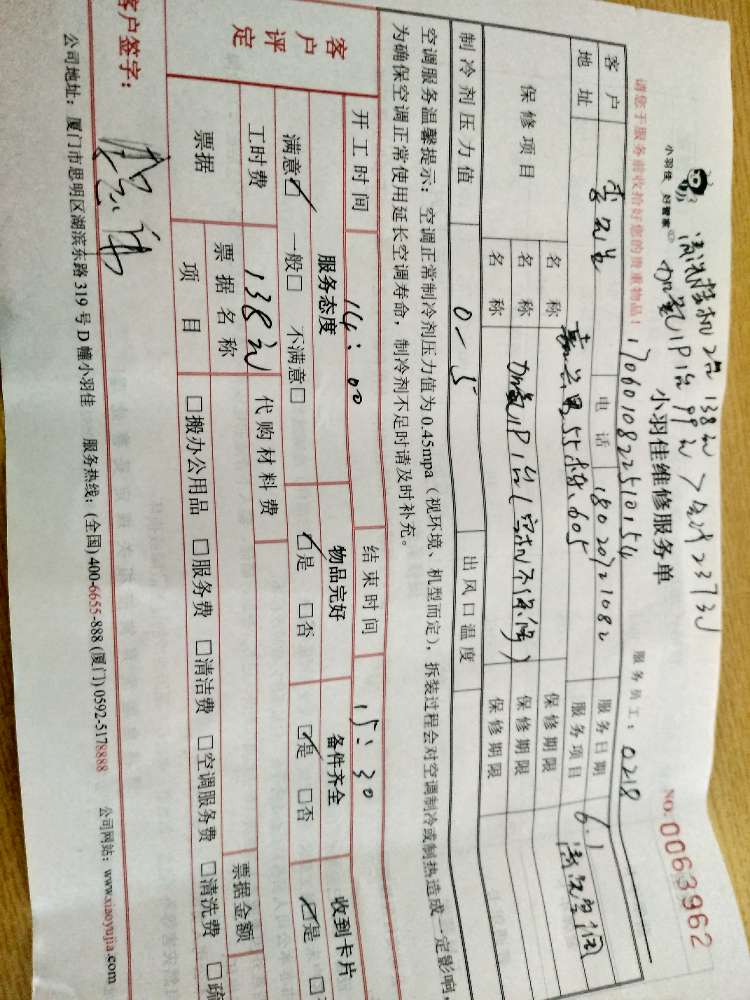 小羽佳 好管家
清洗挂机2台 138元
加氨1P1台 99元 > 合计237元
小羽佳维修服务单
NO.0063962
请您于服务前收拾好您的贵重物品!
1706010822510154
服务员工: 0218
客户
电话 18020721082
服务日期 6.1
地址
605
服务项目 清洗空调
保修项目
名称
保修期限
名称 加氨1P1台
保修期限
名称
保修期限
制冷剂压力值 0-5
出风口温度
空调服务温馨提示:空调正常制冷剂压力值为0.45mpa(视环境、机型而定),拆装过程会对空调制冷或制热造成一定影响,
为确保空调正常使用延长空调寿命,制冷剂不足时请及时补充。
开工时间 14:00
结束时间 15:30
客户评定
服务态度 物品完好 备件齐全 收到卡片
满意☑ 一般□ 不满意□ ☑是 □否 ☑是 □否 ☑是
工时费 138元
代购材料费
票据
票据名称
票据金额
项目
□搬办公用品 □服务费 □清洁费 □空调服务费 □清洗费 □疏
客户签字:
公司地址:厦门市思明区湖滨东路319号D幢小羽佳 服务热线:(全国)400-6655-888(厦门)0592-5178888 公司网站:www.xiaoyujia.com